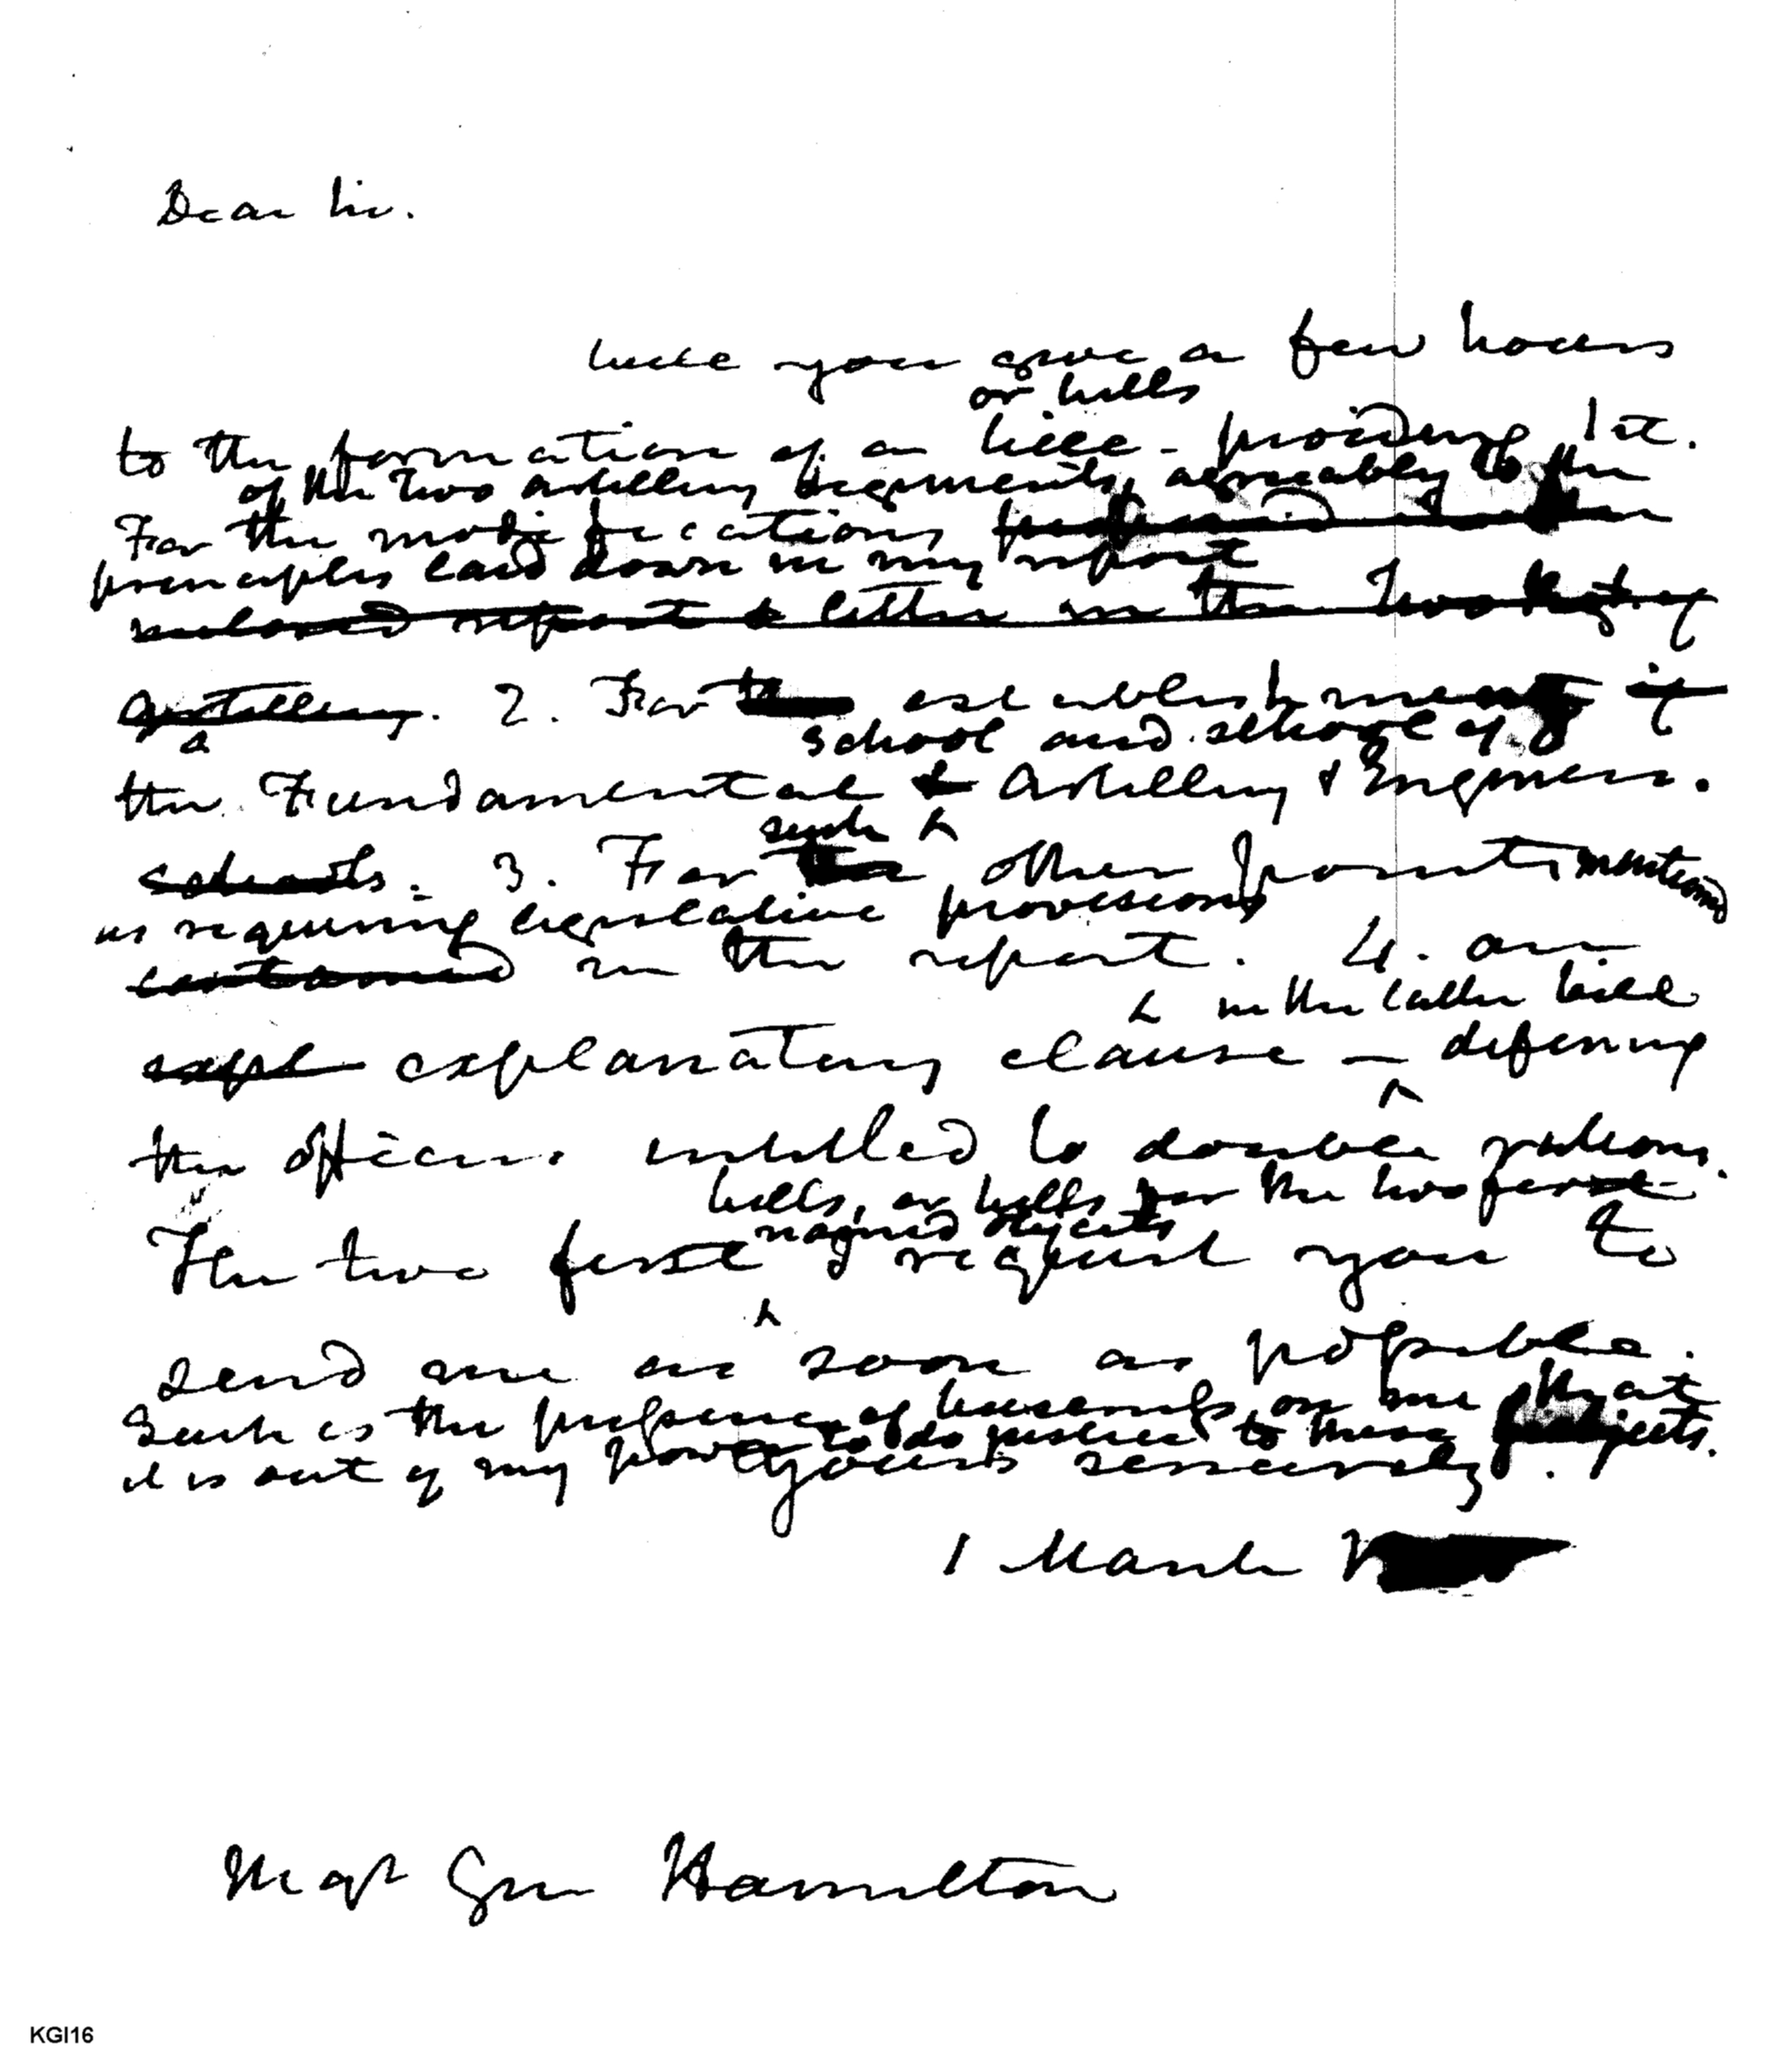 Dear Sir.
Will you give a few hours
or bills
to the formation of a bill - providing 1st.
of the two artillery regiments, agreeably to the
For the modifications
principles laid down in my report
inclosed report & letter in the two Regts. of
artillery. 2. For the establishment of
a school and school of
the Fundamental & Artillery & Engineers.
such
schools. 3. For the other points mentioned
as requiring legislative provisions
contained in the report. 4. an
in the latter bill
expl explanatory clause — defining
the officers entitled to double rations.
bills, or bills for the two first
named objects
The two first I request you to
send me as soon as possible.
Such is the pressure of business on me that
it is out of my power to do justice to these subjects.
Yours sincerely.
1 March
Maj Gen Hamilton
KGI16